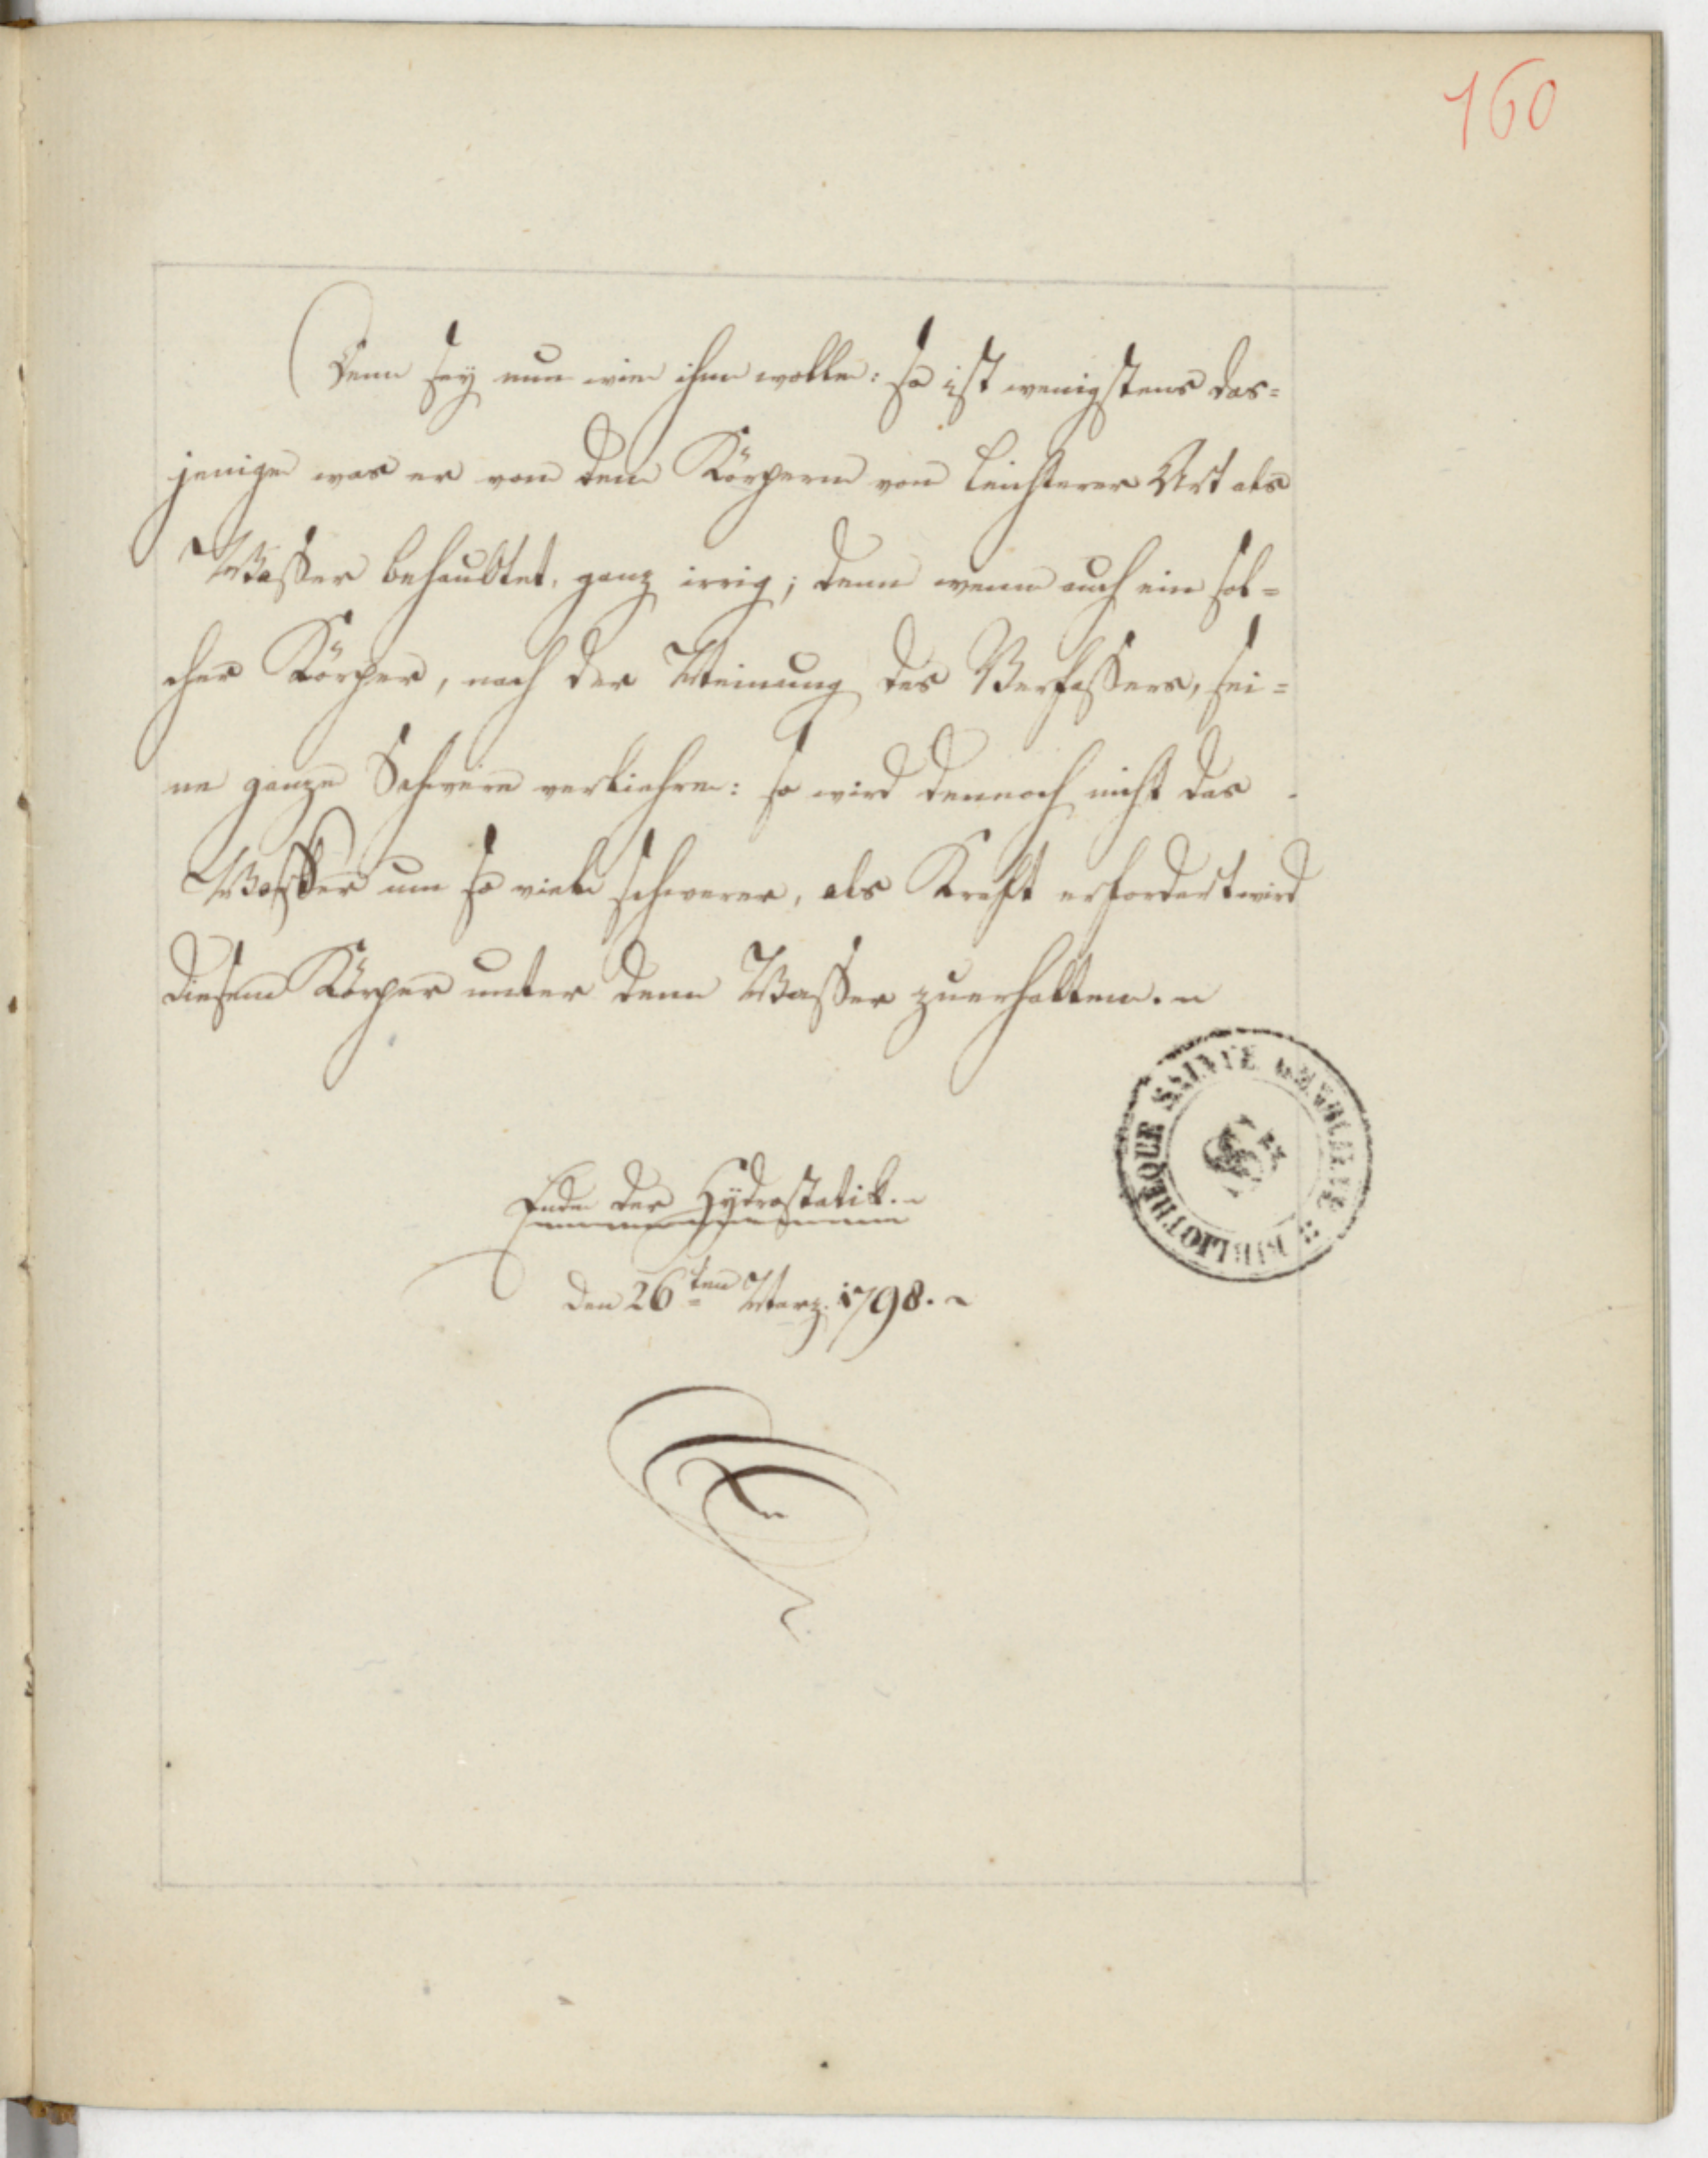 160
Denn sey nun wie ihm wolle: so ist wenigstens das=
jenige was er von den Körpern von leichterer Art als
Wasser behaubtet, ganz irrig; denn wenn auch ein sol=
cher Körper, nach der Meinung des Verfassers, sei=
ne ganze Schwere verliehre: so wird dennoch nicht das
Wasser um so viele schwerer, als Kraft erfordert wird
diesem Körper unter dem Wasser zuerhalten.
BIBLIOTHEQUE SAINTE GENEVIEVE
Ende der Hydrostatik.
den 26ten Marz. 1798.